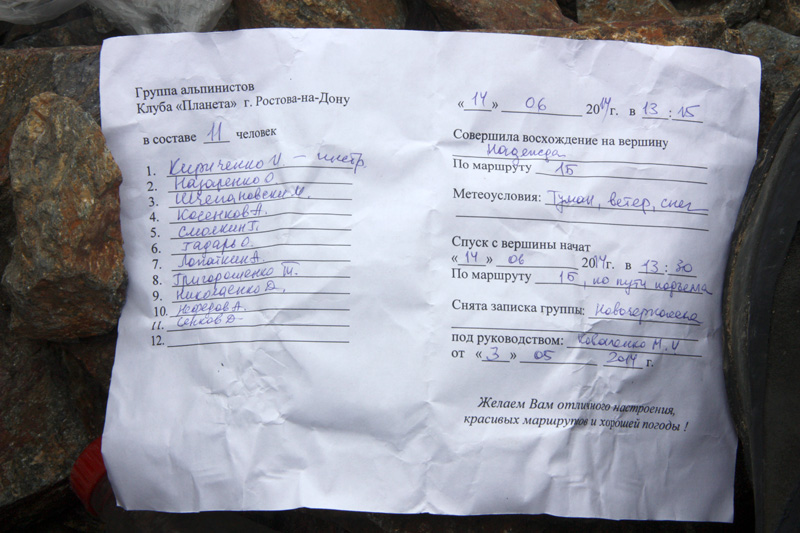 Группа альпинистов
Клуба «Планета» г. Ростова-на-Дону
в составе 11 человек
1. Кириченко И. – инстр.
2. Назаренко О.
3. Шумановский И.
4. Косенков А.
5. Смолкин Г.
6. Гадарь О.
7. Лопаткин А.
8. Григорошенко М.
9. Николаенко Д.
10. Нефедов А.
11. Сенков Д.
12.
«14» 06 2014г. в 13:15
Совершила восхождение на вершину
Надежда
По маршруту 1Б
Метеоусловия: Туман, ветер, снег
Спуск с вершины начат
«14» 06 2014г. в 13:30
По маршруту 1Б, по пути подъема
Снята записка группы: Новочеркасска
под руководством: Коваленко М. И
от «3» 05 2014 г.
Желаем Вам отличного настроения,
красивых маршрутов и хорошей погоды !